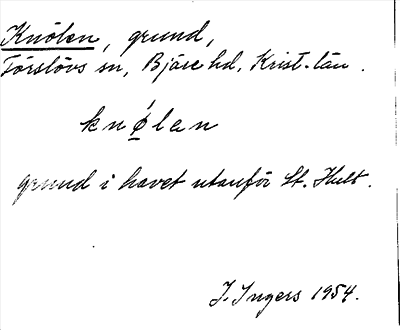 Knölen, grund,
Förslövs sn, Bjäre hd, Krist. län.
knǿ̱lan
grund i havet utanför St. Hult.
I. Ingers 1954.